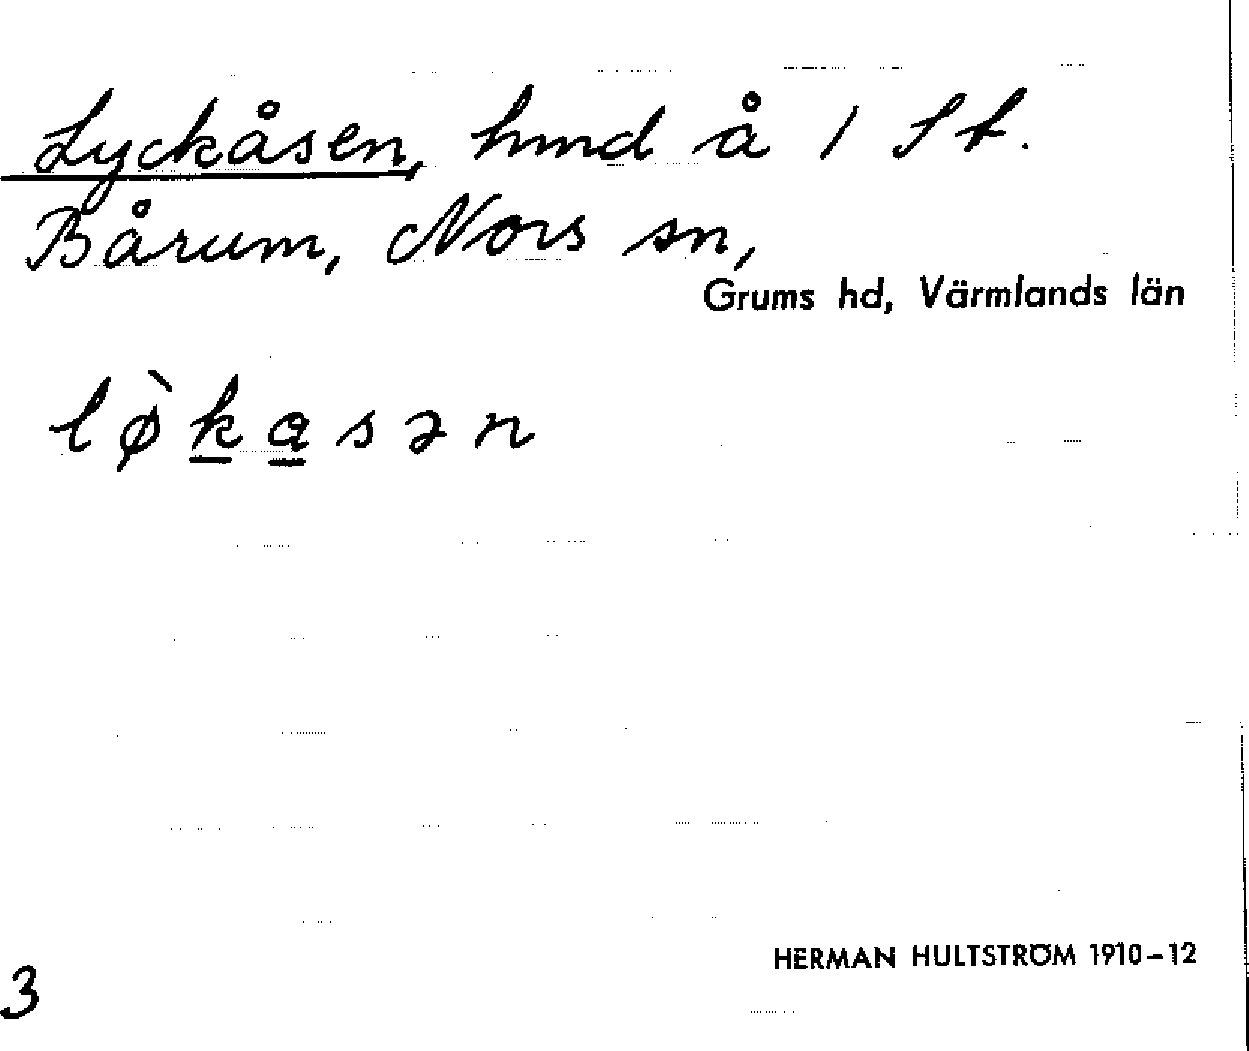 Lyckåsen, hmd å 1 St.
Bårum, Nors sn,
Grums hd, Värmlands län
lø̀k̲a̲sən
3
HERMAN HULTSTRÖM 1910–12